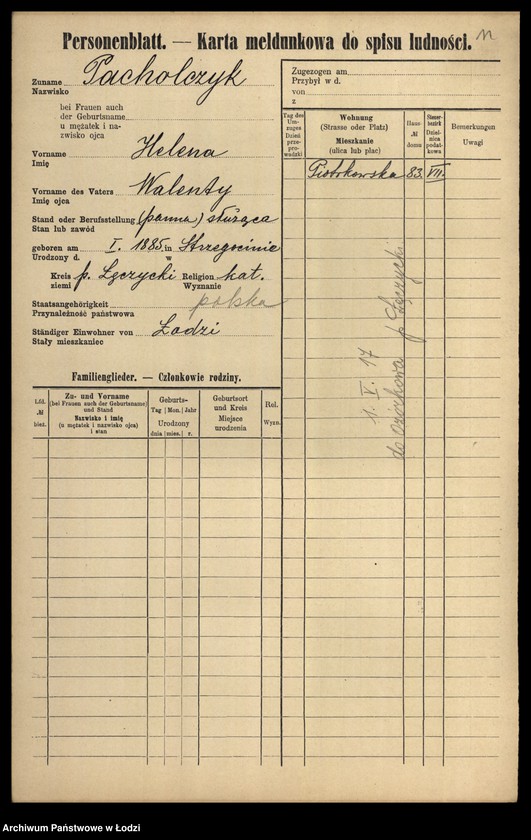 11
Personenblatt. — Karta meldunkowa do spisu ludności.
Zuname Pacholczyk
Nazwisko
bei Frauen auch
der Geburtsname
u mężatek i na-
zwisko ojca
Vorname Helena
Imię
Vorname des Vaters Walenty
Imię ojca
Stand oder Berufsstellung (panna) służąca
Stan lub zawód
geboren am I. 1885 in Strzegocinie
Urodzony d. w
Kreis p. Łęczycki Religion kat.
ziemi Wyznanie
Staatsangehörigkeit polska
Przynależność państwowa
Ständiger Einwohner von Łodzi
Stały mieszkaniec
Familienglieder. — Członkowie rodziny.
Lfd. № bież.
Zu- und Vorname
(bei Frauen auch der Geburtsname)
und Stand
Nazwisko i imię
(u mężatek i nazwisko ojca)
i stan
Geburts-
Tag | Mon. | Jahr
Urodzony
dnia | mies. | r.
Geburtsort
und Kreis
Miejsce
urodzenia
Rel.
Wyzn.
Zugezogen am
Przybył w d.
von
z
Tag des
Um-
zuges
Dzień
prze-
prowa-
dzki
Wohnung
(Strasse oder Platz)
Mieszkanie
(ulica lub plac)
Haus
№
domu
Steuer-
bezirk
Dziel-
nica
podat-
kowa
Bemerkungen
Uwagi
Piotrkowska 83. VII.
1. V. 17
do Ozorkowa p. Łęczycki
Archiwum Państwowe w Łodzi